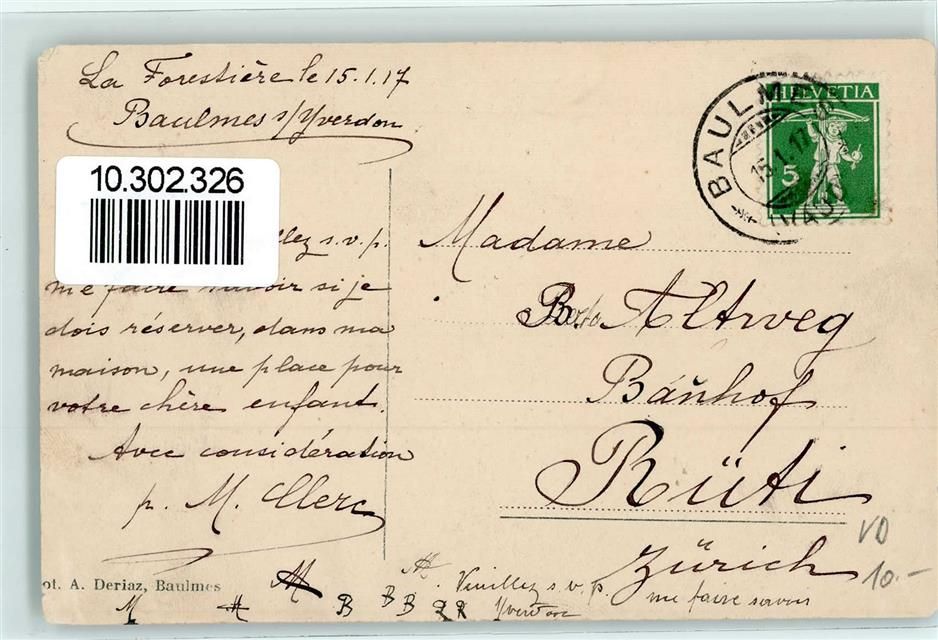 La Forestière le 15.1.17
Baulmes s/Yverdon
10.302.326
HELVETIA
5
BAULMES
15.1.17
(VAUD)
s.v.p.
me faire savoir si je
dois réserver, dans ma
maison, une place pour
votre chère enfant.
Avec considération
p. M. Clerc
Madame
B. Altweg
Bănhof
Rüti
Zürich
ot. A. Deriaz, Baulmes
VD
10.-
M
Veuillez s.v.p.
me faire savoir
M # B B B
Yverdon